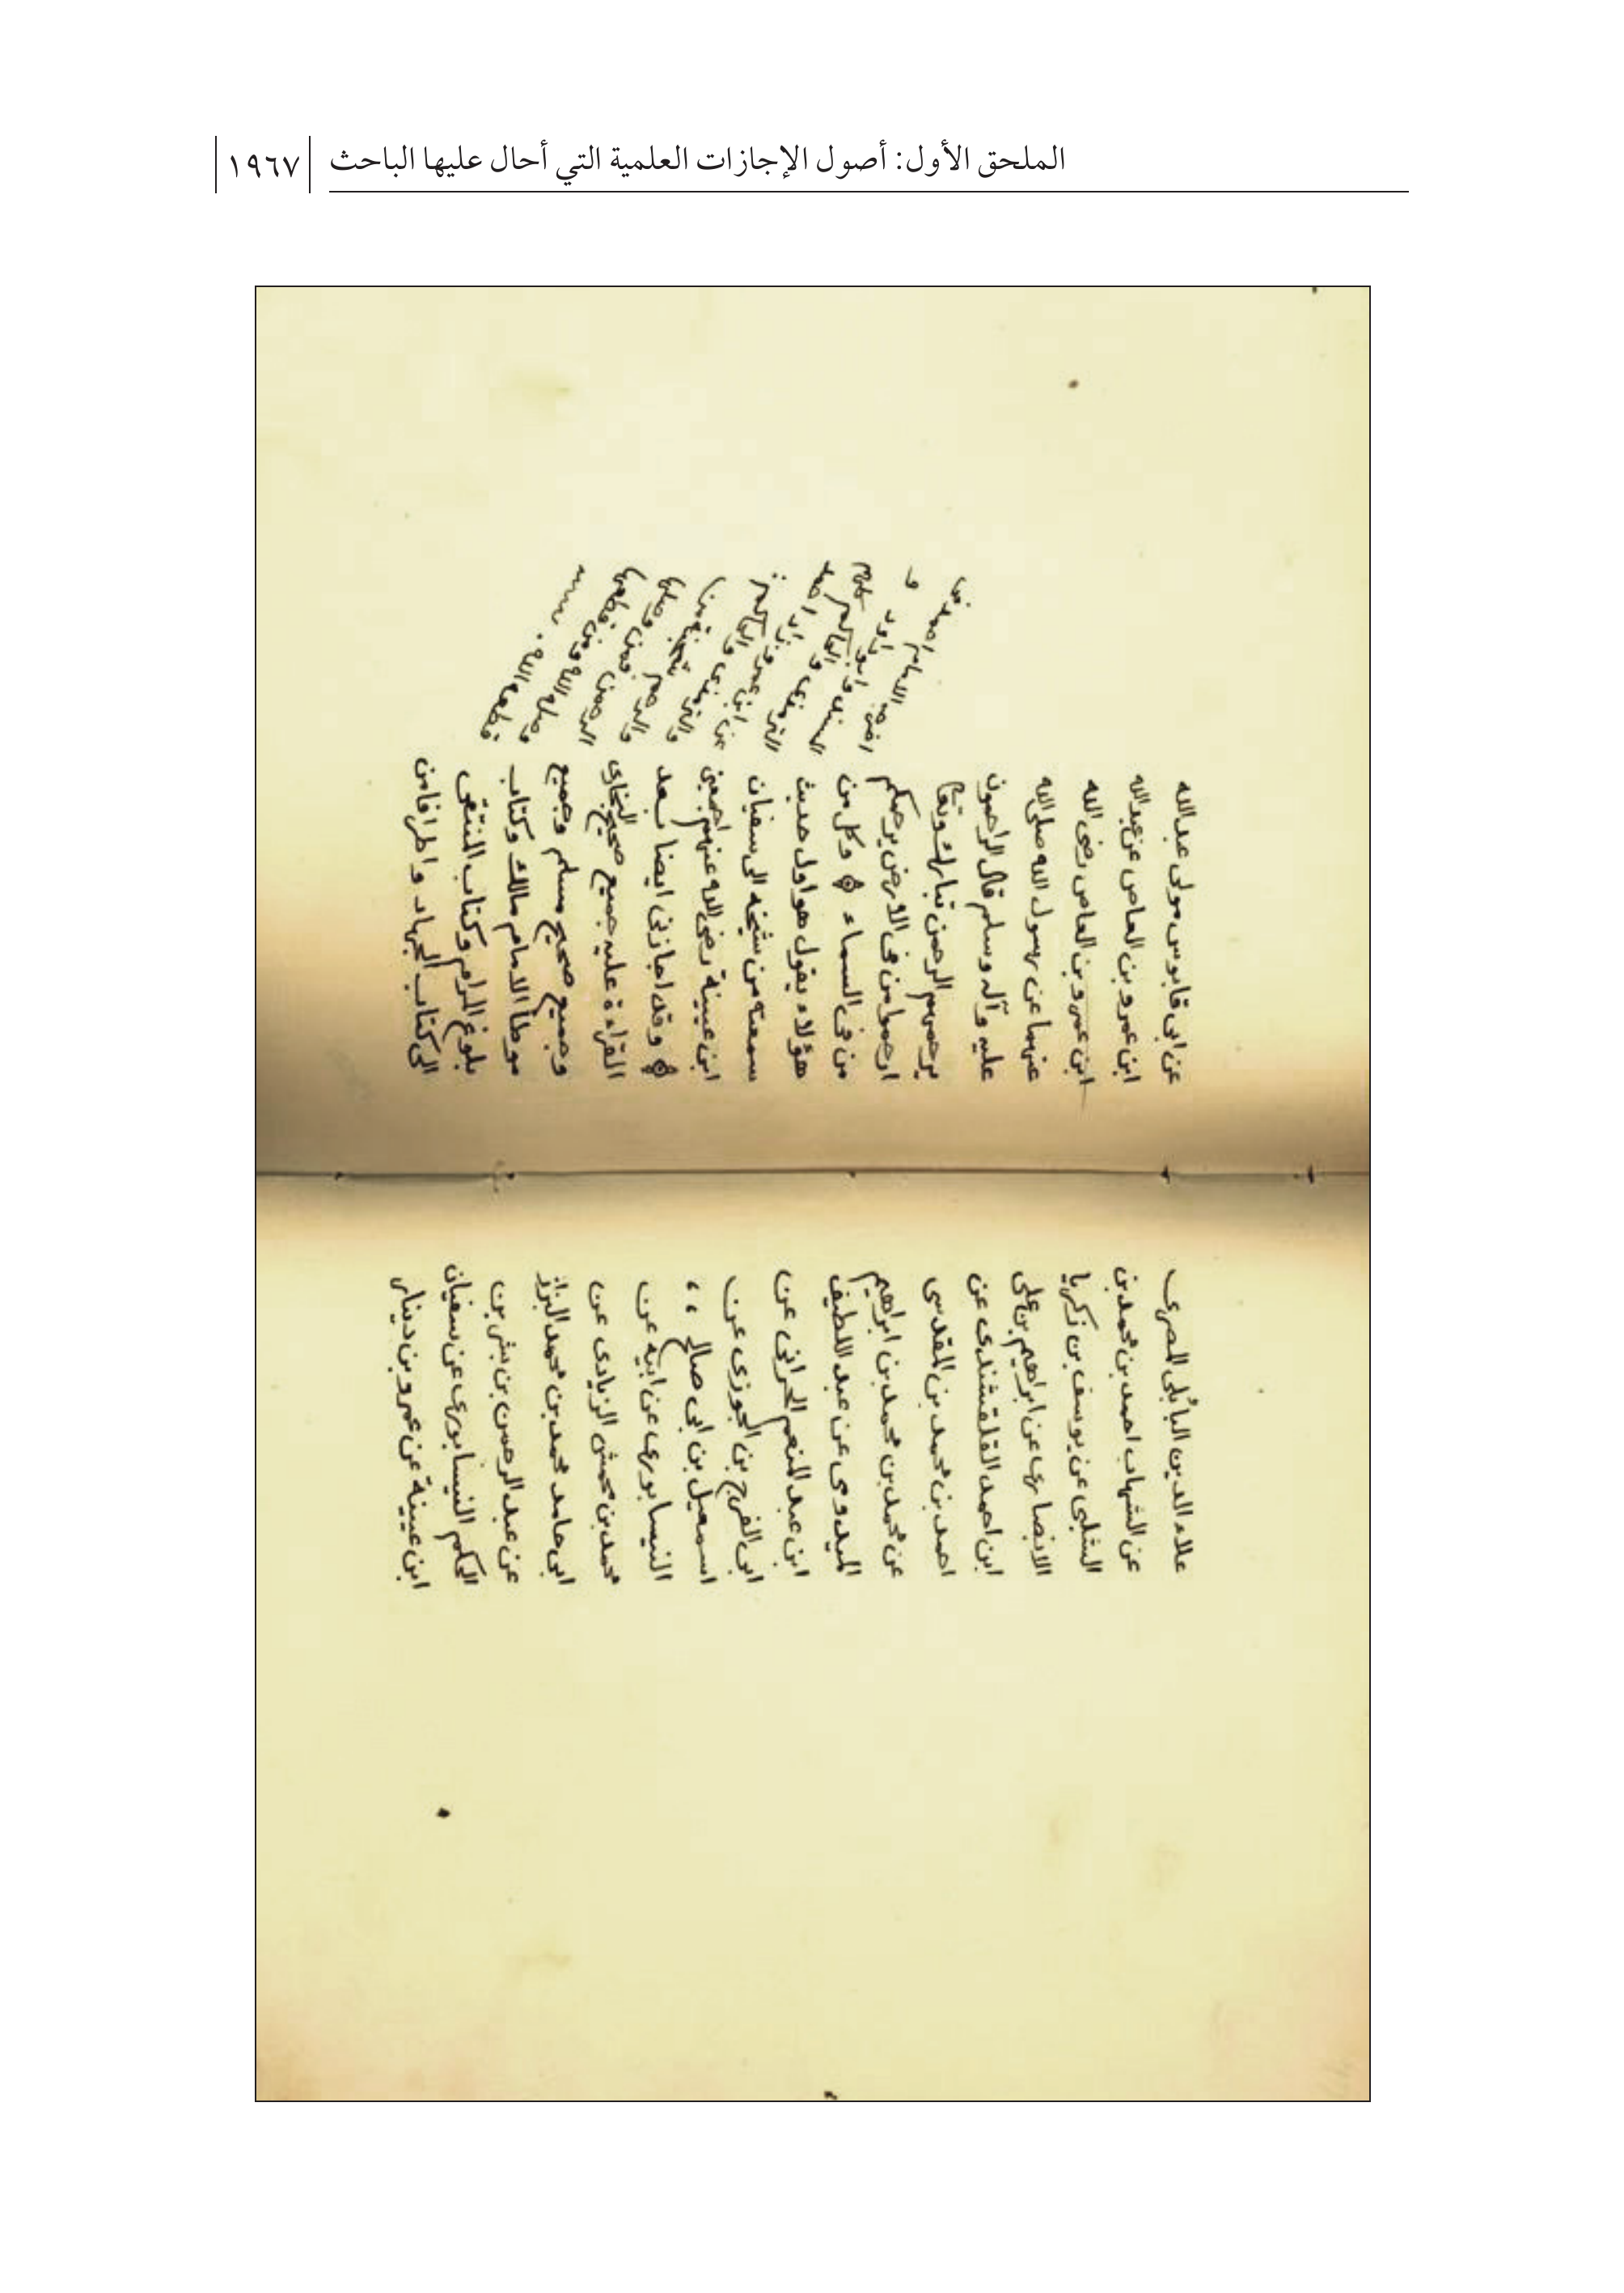 الملحق الأول: أصول الإجازات العلمية التي أحال عليها الباحث
١٩٦٧
علاء الدين البابلى المصرى
عن الشهاب احمد بن محمد بن
الشلبى عن يوسف بن زكريا
الانصارى عن ابراهيم بن على
ابن احمد القلقشندى عن
احمد بن محمد بن المقدسى
عن محمد بن محمد بن ابراهيم
الميدومى عن عبد اللطيف
ابن عبد المنعم الحرانى عن
ابى الفرج بن الجوزى عن
اسمعيل بن ابى صالح
النيسابورى عن ابيه عن
محمد بن محمش الزيادى عن
ابى حامد محمد بن محمد البزاز
عن عبد الرحمن بن بشر بن
الحكم النيسابورى عن سفيان
ابن عيينة عن عمرو بن دينار
عن ابى قابوس مولى عبد الله
ابن عمرو بن العاص عن عبد الله
ابن عمرو بن العاص رضى الله
عنهما عن رسول الله صلى الله
عليه وآله وسلم قال الراحمون
يرحمهم الرحمن تبارك وتعالى
ارحموا من فى الارض يرحمكم
من فى السماء وكل من
هؤلاء يقول هو اول حديث
سمعته من شيخه الى سفيان
ابن عيينة رضى الله عنهم اجمعين
وقد اجازنى ايضا بعد
القراءة عليه جميع صحيح البخارى
وجميع صحيح مسلم وجميع
موطأ الامام مالك وكتاب
بلوغ المرام وكتاب المنتقى
الى كتاب الجهاد واطرافا من
اخرجه الامام احمد فى
ابو داود و
الترمذى والحاكم
وزاد احمد
والترمذى والحاكم
عن ابن عمر
والرحم شجنة من
الرحمن فمن وصلها
وصله الله ومن قطعها
قطعه الله